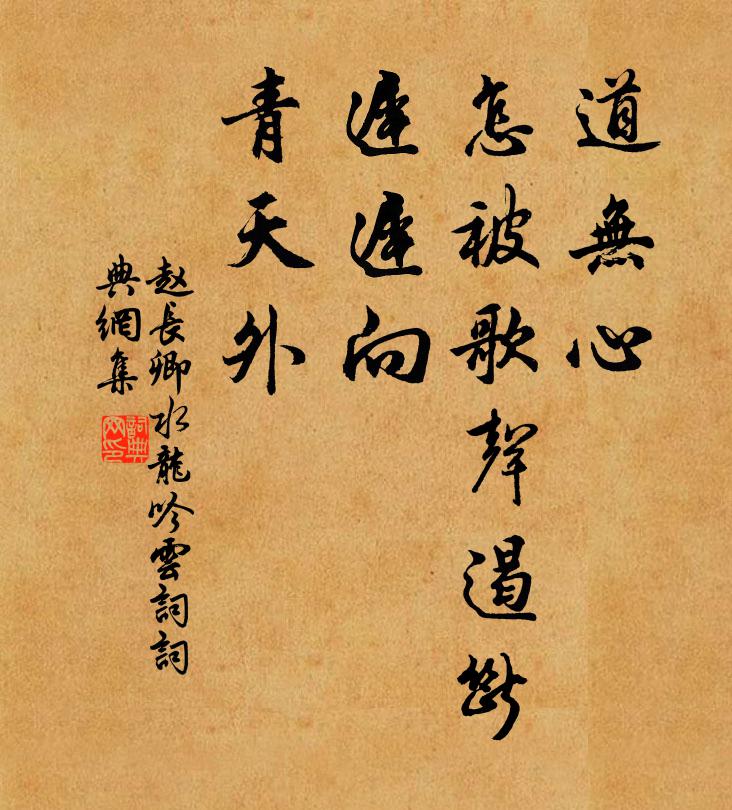 道無心
怎被歌聲遏斷
遲遲向
青天外
赵長卿水龍吟雲詞詞
典網集
詞典網印